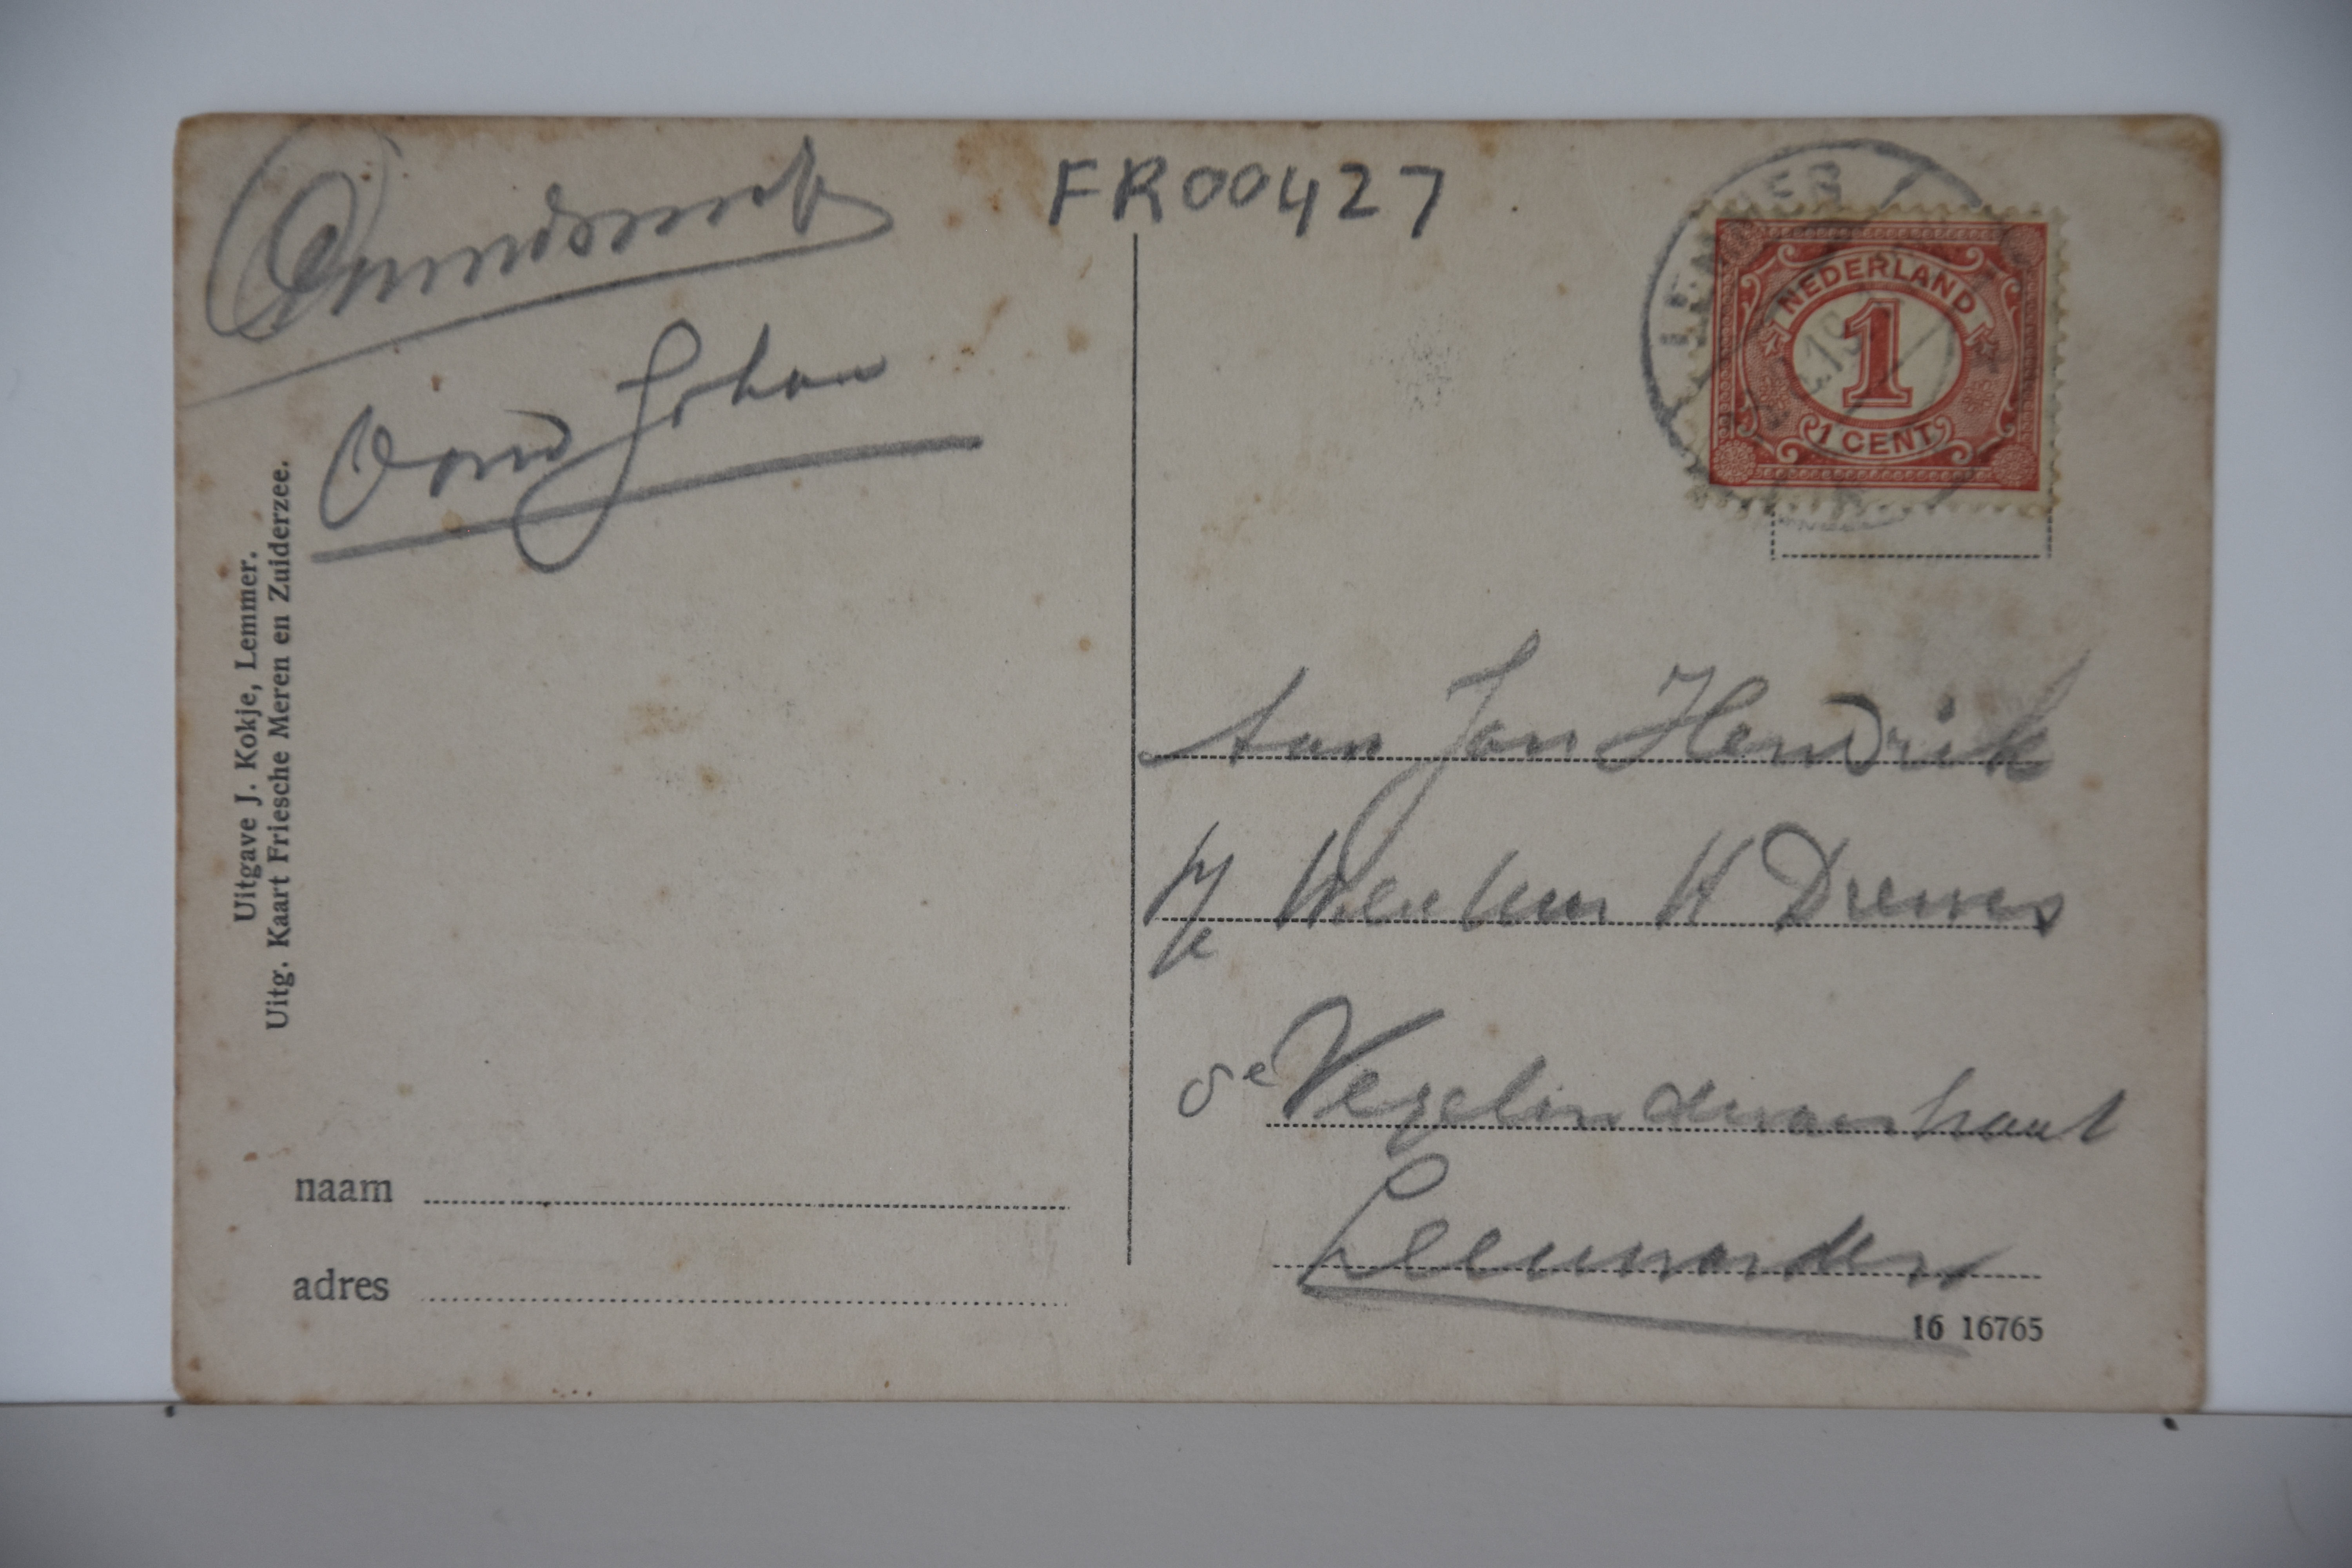 FR00427
LEMMER
NEDERLAND
1
1 CENT
Oom Johan
Uitgave J. Kokje, Lemmer.
Uitg. Kaart Friesche Meren en Zuiderzee.
Aan Jan Hendrik
H Drewes
Leeuwarden
naam
adres
16 16765